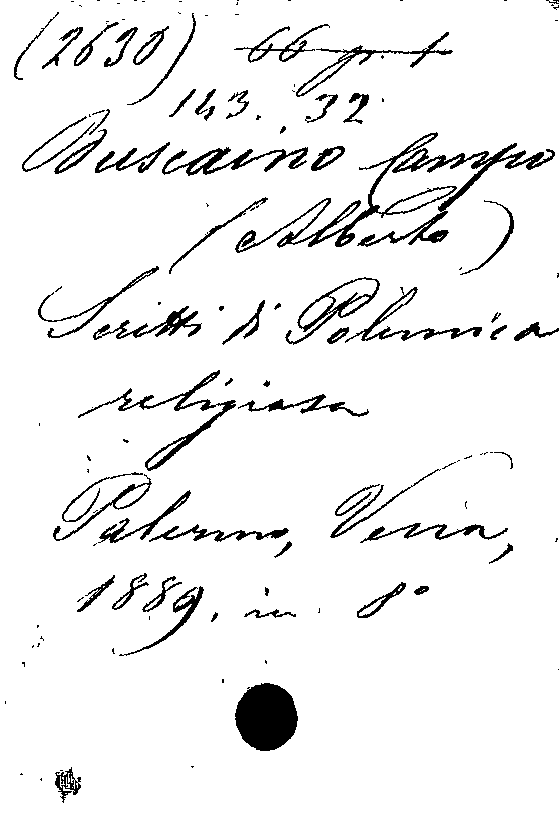 (2630) 66 p. 1
143. 32
Buscaino Campo
(Alberto)
Scritti di Polemica
religiosa
Palermo, Vena,
1889. in 8°